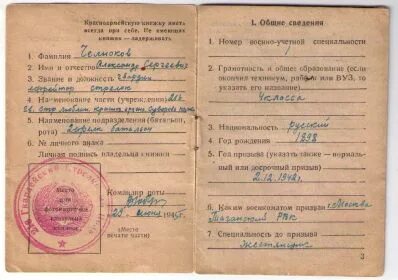 Красноармейскую книжку иметь
всегда при себе. Не имеющих
книжек — задерживать.
1. Фамилия Челноков
2. Имя и отчество Александр Сергеевич
3. Звание и должность гвардии
ефрейтор стрелок
4. Наименование части (учреждения)
гв. стр.
5. Наименование подразделения (бат-он,
рота) батальон
6. № личного знака
Личная подпись владельца книжки
Место
для
фотокарточки
владельца
книжки
Командир роты
1945г.
(Место
печати части)
I. Общие сведения
1. Номер военно-учетной специальности
1
2. Грамотность и общее образование (если
окончил техникум, рабфак или ВУЗ, то
указать его название)
4 класса
3. Национальность русский
4. Год рождения 1898
5. Год призыва (указать также — нормаль-
ный или досрочный призыв)
2.12.1942г.
6. Каким военкоматом призван г. Москва
Таганский РВК
7. Специальность до призыва
3